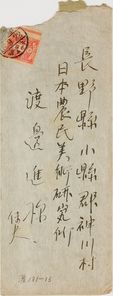 長野縣小縣郡神川村
日本農民美術研究所
渡邊進様